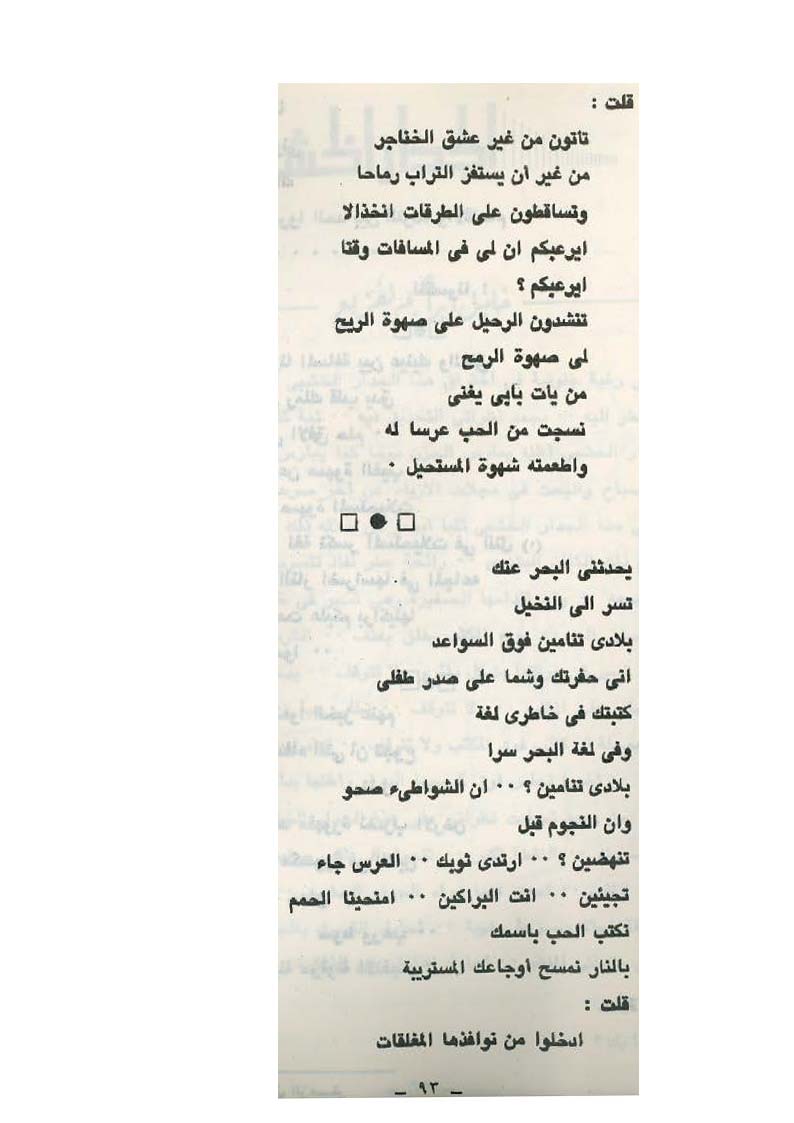 قلت :
تأتون من غير عشق الخناجر
من غير أن يستفز التراب رماحا
وتساقطون على الطرقات انخذالا
ايرعبكم ان لى فى المسافات وقتا
ايرعبكم ؟
تنشدون الرحيل على صهوة الريح
لى صهوة الرمح
من يأت يأبى يغنى
نسجت من الحب عرسا له
واطعمته شهوة المستحيل ٠
□ ● □
يحدثنى البحر عنك
تسر الى النخيل
بلادى تنامين فوق السواعد
انى حفرتك وشما على صدر طفلى
كتبتك فى خاطرى لغة
وفى لغة البحر سرا
بلادى تنامين ؟ ٠٠ ان الشواطىء صحو
وان النجوم قبل
تنهضين ؟ ٠٠ ارتدى ثوبك ٠٠ العرس جاء
تجيئين ٠٠ انت البراكين ٠٠ امنحينا الحمم
نكتب الحب باسمك
بالنار نمسح أوجاعك المستريبة
قلت :
ادخلوا من نوافذها المغلقات
_ ٩٣ _